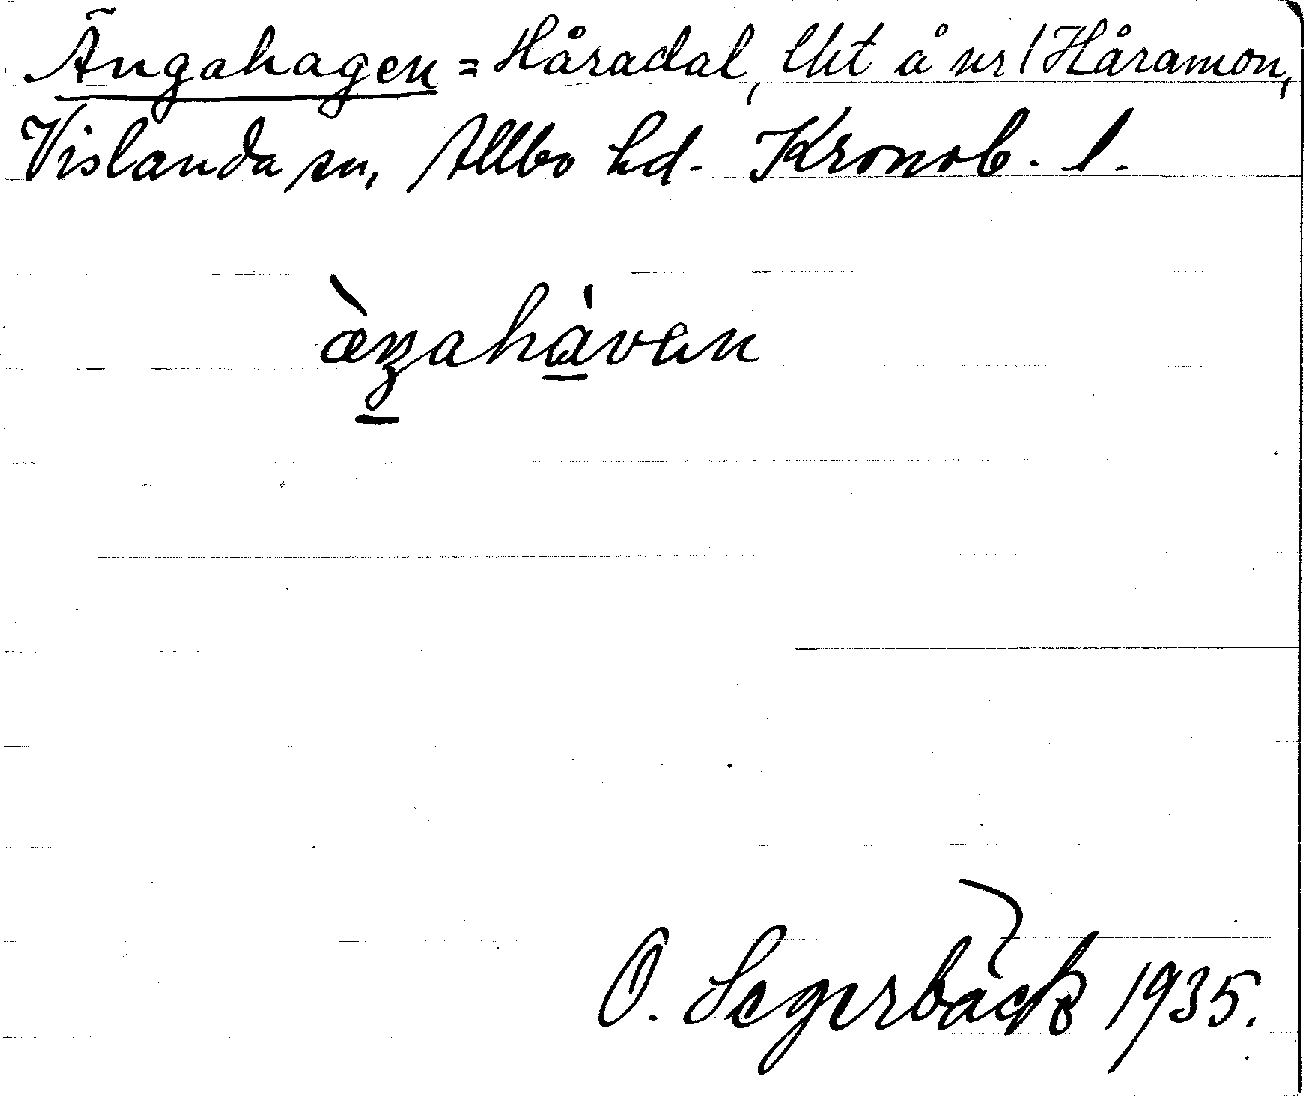 Ängahagen = Håradal, lht å nr 1 Håramon,
Vislanda sn, Allbo hd. Kronob. l.
æ̀ŋahàven
O. Segerbäck 1935.